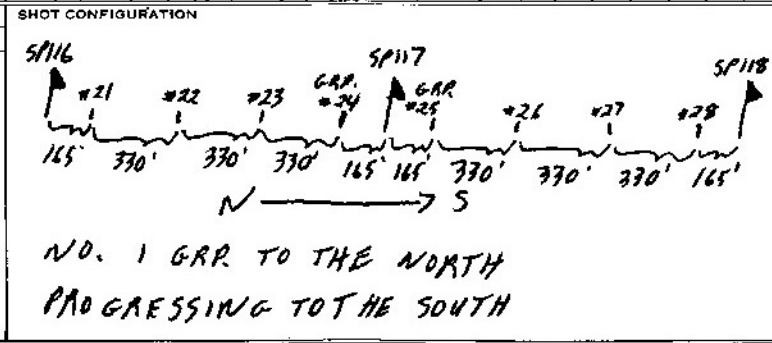 SHOT CONFIGURATION
SP116 SP117 SP118
#21 #22 #23 GRP. #24 GRP. #25 #26 #27 #28
165' 330' 330' 330' 165' 165' 330' 330' 330' 165'
N S
NO. 1 GRP. TO THE NORTH
PROGRESSING TO THE SOUTH